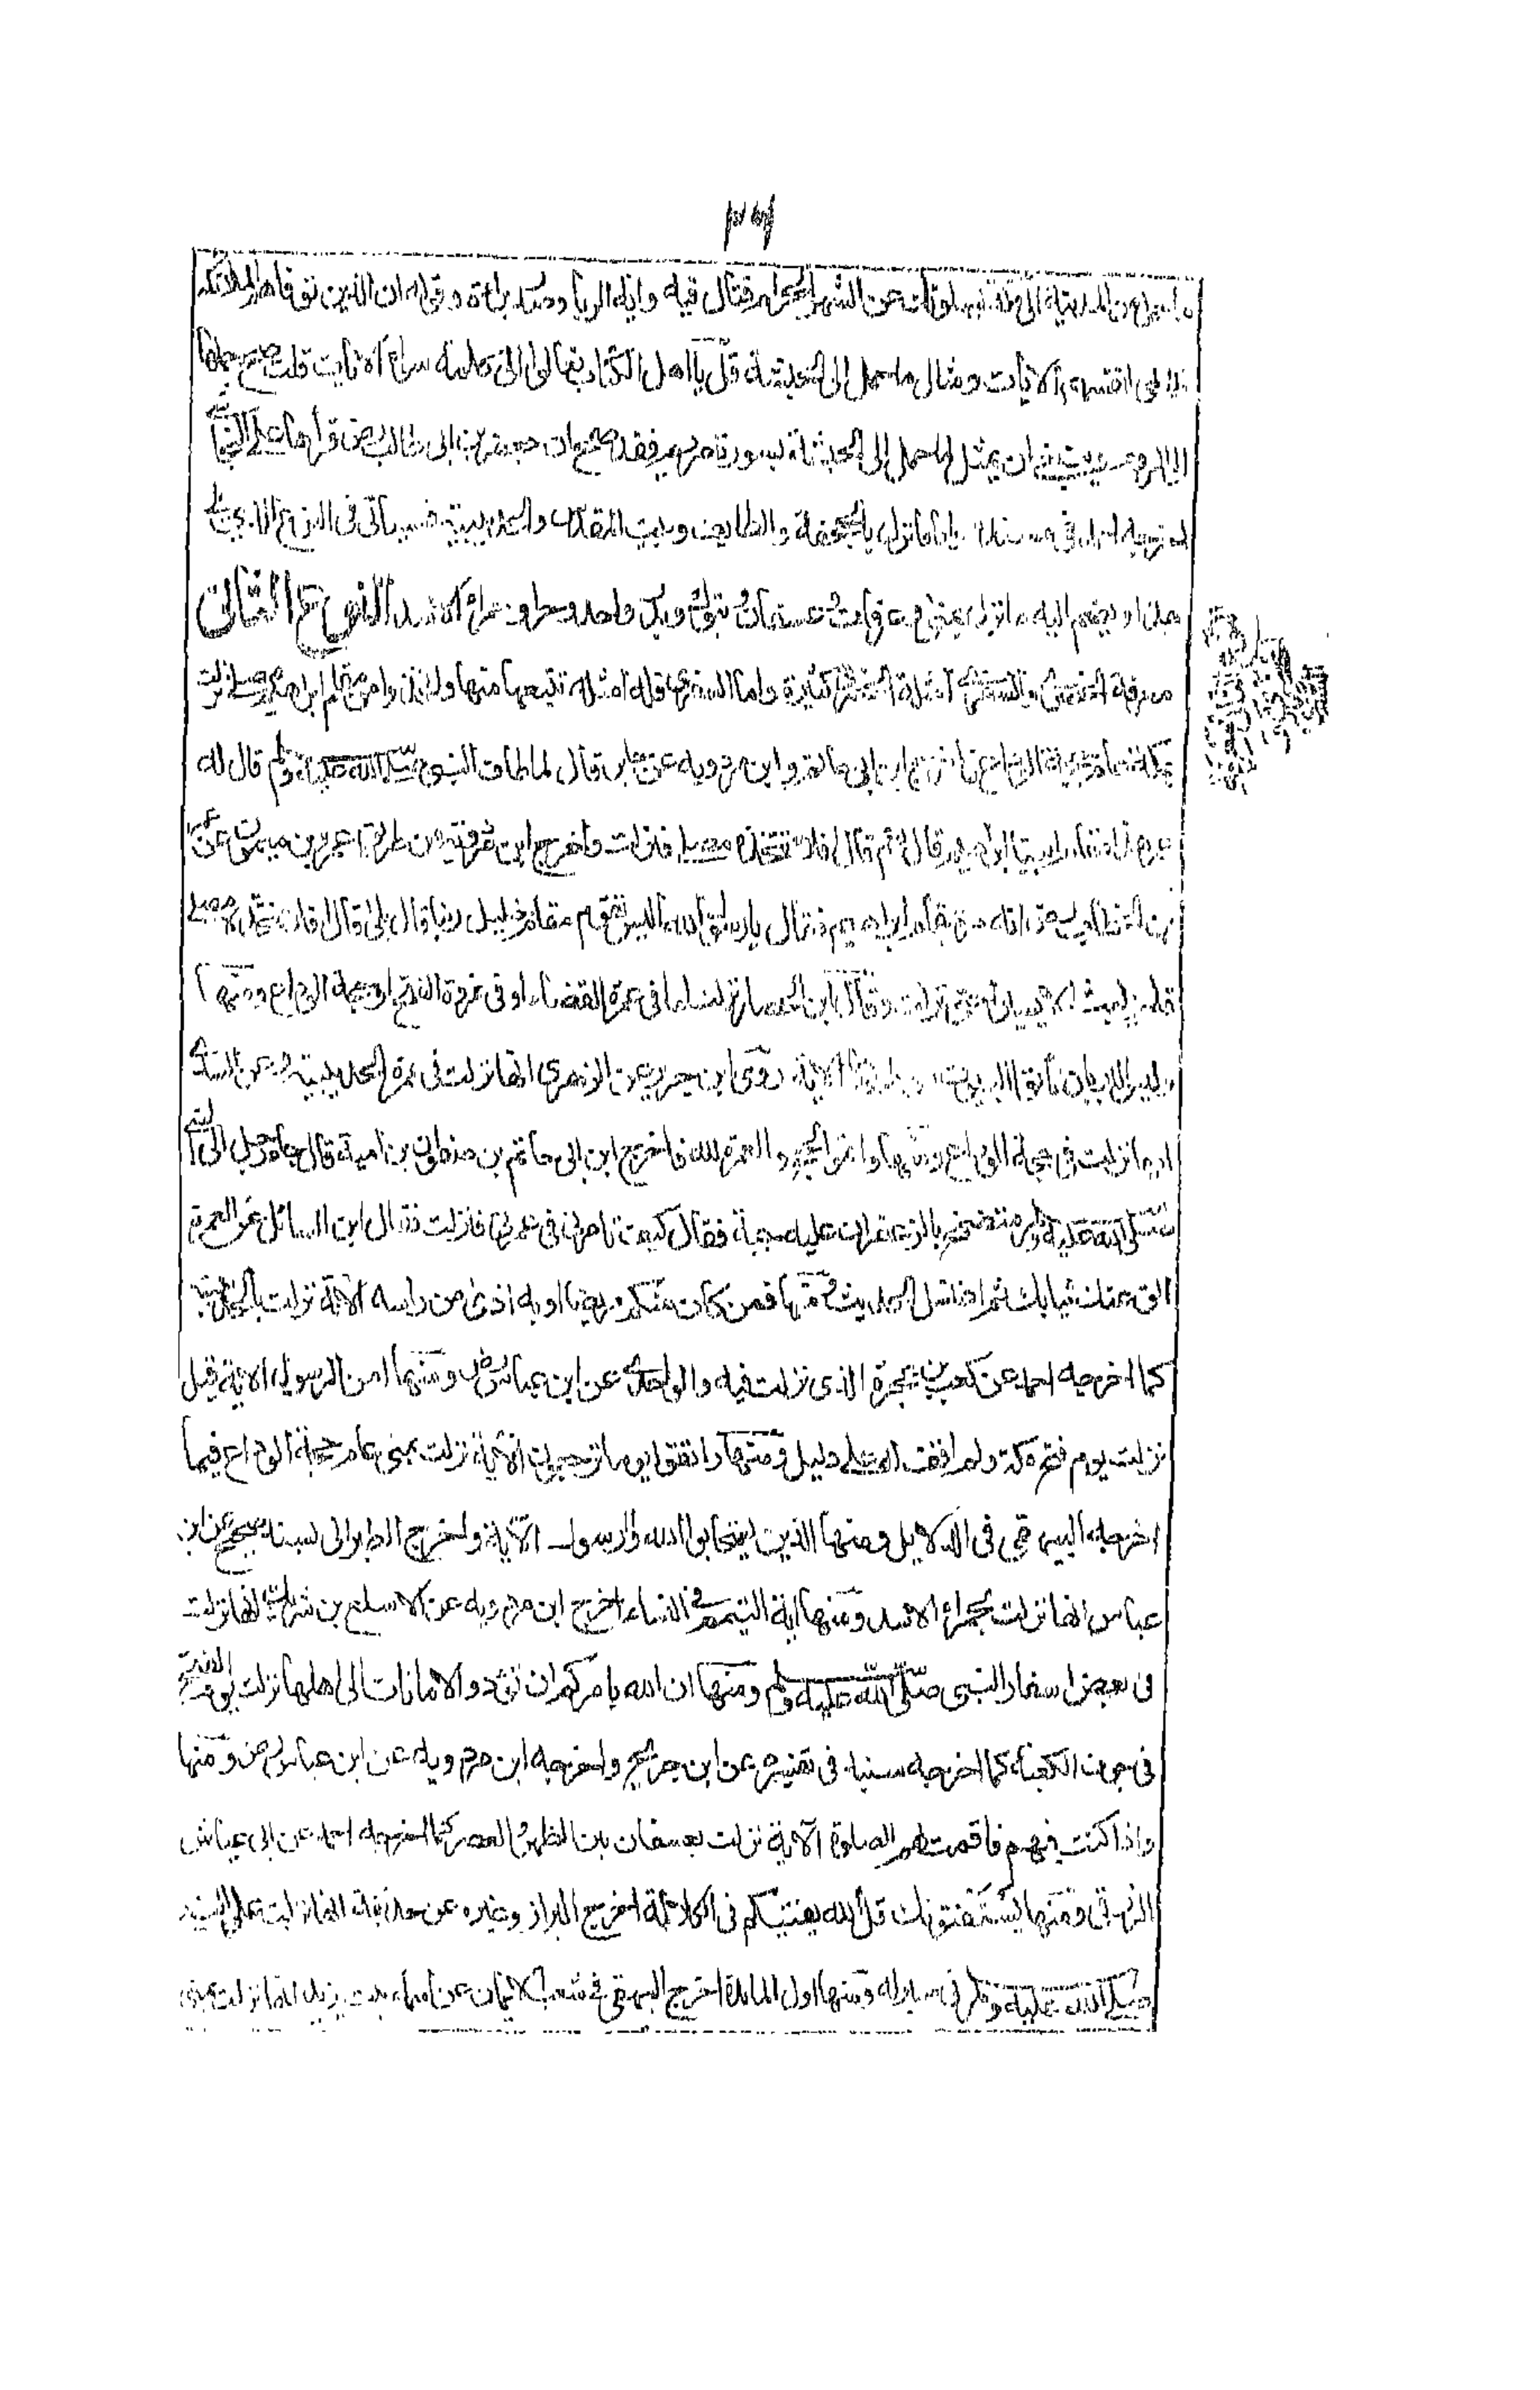 ٣٦
المدينة الى مكة يسألونك عن الشهر الحرام قتال فيه واية الربا وصدر براءة وقوله ان الذين توفاهم الملائكة
ظالمى انفسهم الايات ومثال ما حمل الى الحبشة قل يا اهل الكتاب تعالوا الى كلمة سواء الايات قلت صح حملها
الى الروم وينبغى ان يمثل لما حمل الى الحبشة بسورة مريم فقد صح ان جعفر بن ابى طالب رض قرأها على النجاشى
اخرجه احمد فى مسنده واما ما نزل بالجحفة والطايف وبيت المقدس والحديبية فسيأتى فى النوع الذى يلى
هذا ويضم اليه ما نزل بمنى وعرفات وعسفان وتبوك وبدر واحد وحراء وحمراء الاسد النوع الثانى
معرفة الحضرى والسفرى امثلة الحضرى كثيرة واما السفرى فله امثلة تتبعتها منها واتخذوا من مقام ابراهيم مصلى نزلت
بمكة عام حجة الوداع فاخرج ابن ابى حاتم وابن مردويه عن جابر قال لما طاف النبى صلى الله عليه وسلم قال له
عمر هذا مقام ابينا ابراهيم قال نعم قال افلا نتخذه مصلى فنزلت واخرج ابن مردويه من طريق عمرو بن ميمون عن عمر
بن الخطاب رض انه مر بمقام ابراهيم فقال يا رسول الله اليس نقوم مقام خليل ربنا قال بلى قال افلا نتخذه مصلى
فلم يلبث الا يسيرا حتى نزلت وقال ابن الحصار نزلت اما فى عمرة القضاء او فى غزوة الفتح او حجة الوداع ومنها
وليس البر بان تأتوا البيوت من ظهورها الاية روى ابن جرير عن الزهرى انها نزلت فى عمرة الحديبية وعن السدى
انها نزلت فى حجة الوداع ومنها واتموا الحج والعمرة لله فاخرج ابن ابى حاتم بن صفوان بن امية قال جاء رجل الى النبى
صلى الله عليه وسلم متضمخ بالزعفران عليه جبة فقال كيف تأمرنى فى عمرتى فنزلت فقال اين السائل عن العمرة
الق عنك ثيابك ثم اغتسل الحديث ومنها فمن كان منكم مريضا او به اذى من راسه الاية نزلت بالحديبية
كما اخرجه احمد عن كعب بن عجرة الذى نزلت فيه والواحدى عن ابن عباس رض ومنها امن الرسول الاية قيل
نزلت يوم فتح مكة ولم اقف له على دليل ومنها واتقوا يوما ترجعون الاية نزلت بمنى عام حجة الوداع فيما
اخرجه البيهقى فى الدلايل ومنها الذين استجابوا لله والرسول الاية واخرج الطبرانى بسند صحيح عن ابن
عباس انها نزلت بحمراء الاسد ومنها اية التيمم فى النساء اخرج ابن مردويه عن الاسلع بن شريك انها نزلت
فى بعض اسفار النبى صلى الله عليه وسلم ومنها ان الله يامركم ان تؤدوا الامانات الى اهلها نزلت يوم الفتح
فى جوف الكعبة كما اخرجه سنيد فى تفسيره عن ابن جريج واخرجه ابن مردويه عن ابن عباس رض ومنها
واذا كنت فيهم فاقمت لهم الصلوة الاية نزلت بعسفان بين الظهر والعصر كما اخرجه احمد عن ابى عياش
الزرقى ومنها يستفتونك قل الله يفتيكم فى الكلالة اخرج البزار وغيره عن حذيفة انها نزلت على النبى
صلى الله عليه وسلم فى مسير له ومنها اول المائدة اخرج البيهقى فى شعب الايمان عن اسماء بنت يزيد انها نزلت بمنى